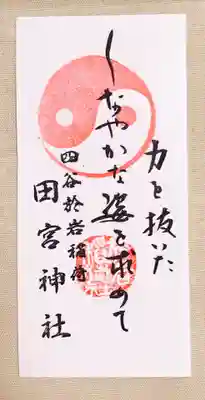 力を抜いた
しなやかな姿を求めて
四谷於岩稲荷
田宮神社